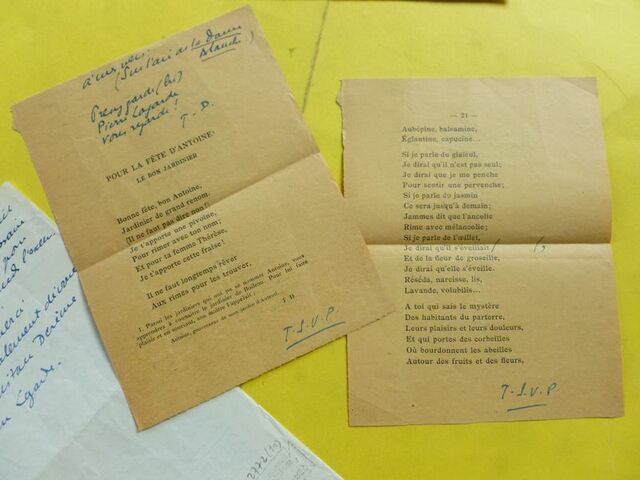 (Sur l'air de la Dame
Blanche.)
Prenez garde (bis)
Pierre Lagarde
Vous regarde !
T. D.
POUR LA FÊTE D'ANTOINE¹
LE BON JARDINIER
Bonne fête, bon Antoine,
Jardinier de grand renom!
(Il ne faut pas dire non!)
Je t'apporte une pivoine,
Pour rimer avec ton nom;
Et pour ta femme Thérèse,
Je t'apporte cette fraise!
Il ne faut longtemps rêver
Aux rimes pour les trouver,
1. Parmi les jardiniers qui ont pu se nommer Antoine, vous
apprendrez à connaître le jardinier de Boileau. Pour lui faire
plaisir et en voyant, son maître l'appelait :
Antoine, gouverneur de mon jardin d'Auteuil.
T D
T.S.V.P.
— 21 —
Aubépine, balsamine,
Églantine, capucine...
Si je parle du glaïeul,
Je dirai qu'il n'est pas seul;
Je dirai que je me penche
Pour sentir une pervenche;
Si je parle du jasmin
Ce sera jusqu'à demain;
Jammes dit que l'ancolie
Rime avec mélancolie;
Si je parle de l'œillet,
Je dirai qu'il s'éveillait
Et de la fleur de groseille,
Je dirai qu'elle s'éveille.
Réséda, narcisse, lis,
Lavande, volubilis...
A toi qui sais le mystère
Des habitants du parterre,
Leurs plaisirs et leurs douleurs,
Et qui portes des corbeilles
Où bourdonnent les abeilles
Autour des fruits et des fleurs,
T.S.V.P.
2772(10)